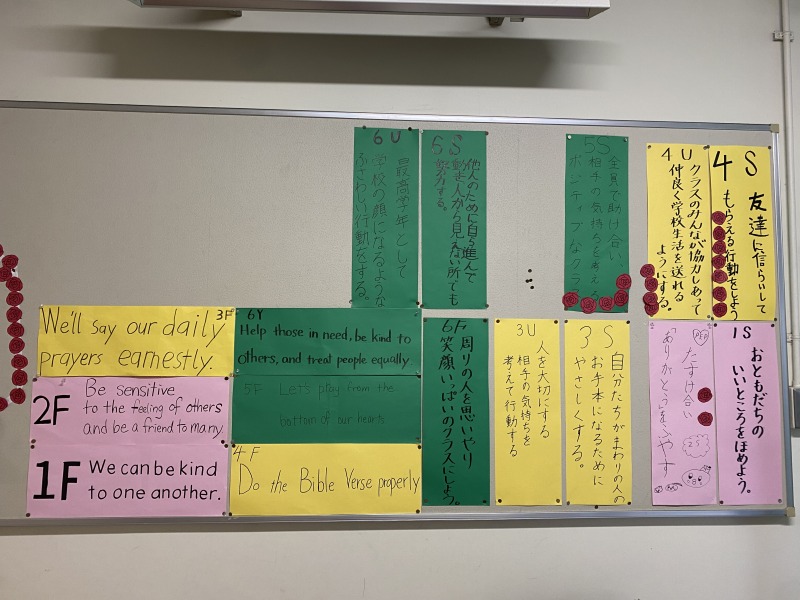 6U
最高学年として
学校の顔になるような
ふさわしい行動をする。
6S
他人のために自ら進んで
動き人から見えない所でも
努力する。
5S
全員で助け合い
相手の気持ちを考え
ポジティブなクラ
4U
クラスのみんなが協力しあって
仲良く学校生活を送れる
ようにする。
4S
友達に信らいして
もらえる行動をしよう
3F
We'll say our daily
prayers earnestly.
6Y
Help those in need, be kind to
others, and treat people equally
2F
Be sensitive
to the feeling of others
and be a friend to many
5F Let's pray from the
bottom of our hearts
1F
We can be kind
to one another.
4F
Do the Bible Verse properly
6F
周りの人を思いやり
笑顔いっぱいのクラスにしよう。
3U
人を大切にする
相手の気持ちを
考えて行動する
3S
自分たちがまわりの人の
お手本になるために
やさしくする。
たすけ合い
「ありがとう」をふやす
1S
おともだちの
いいところをほめよう。